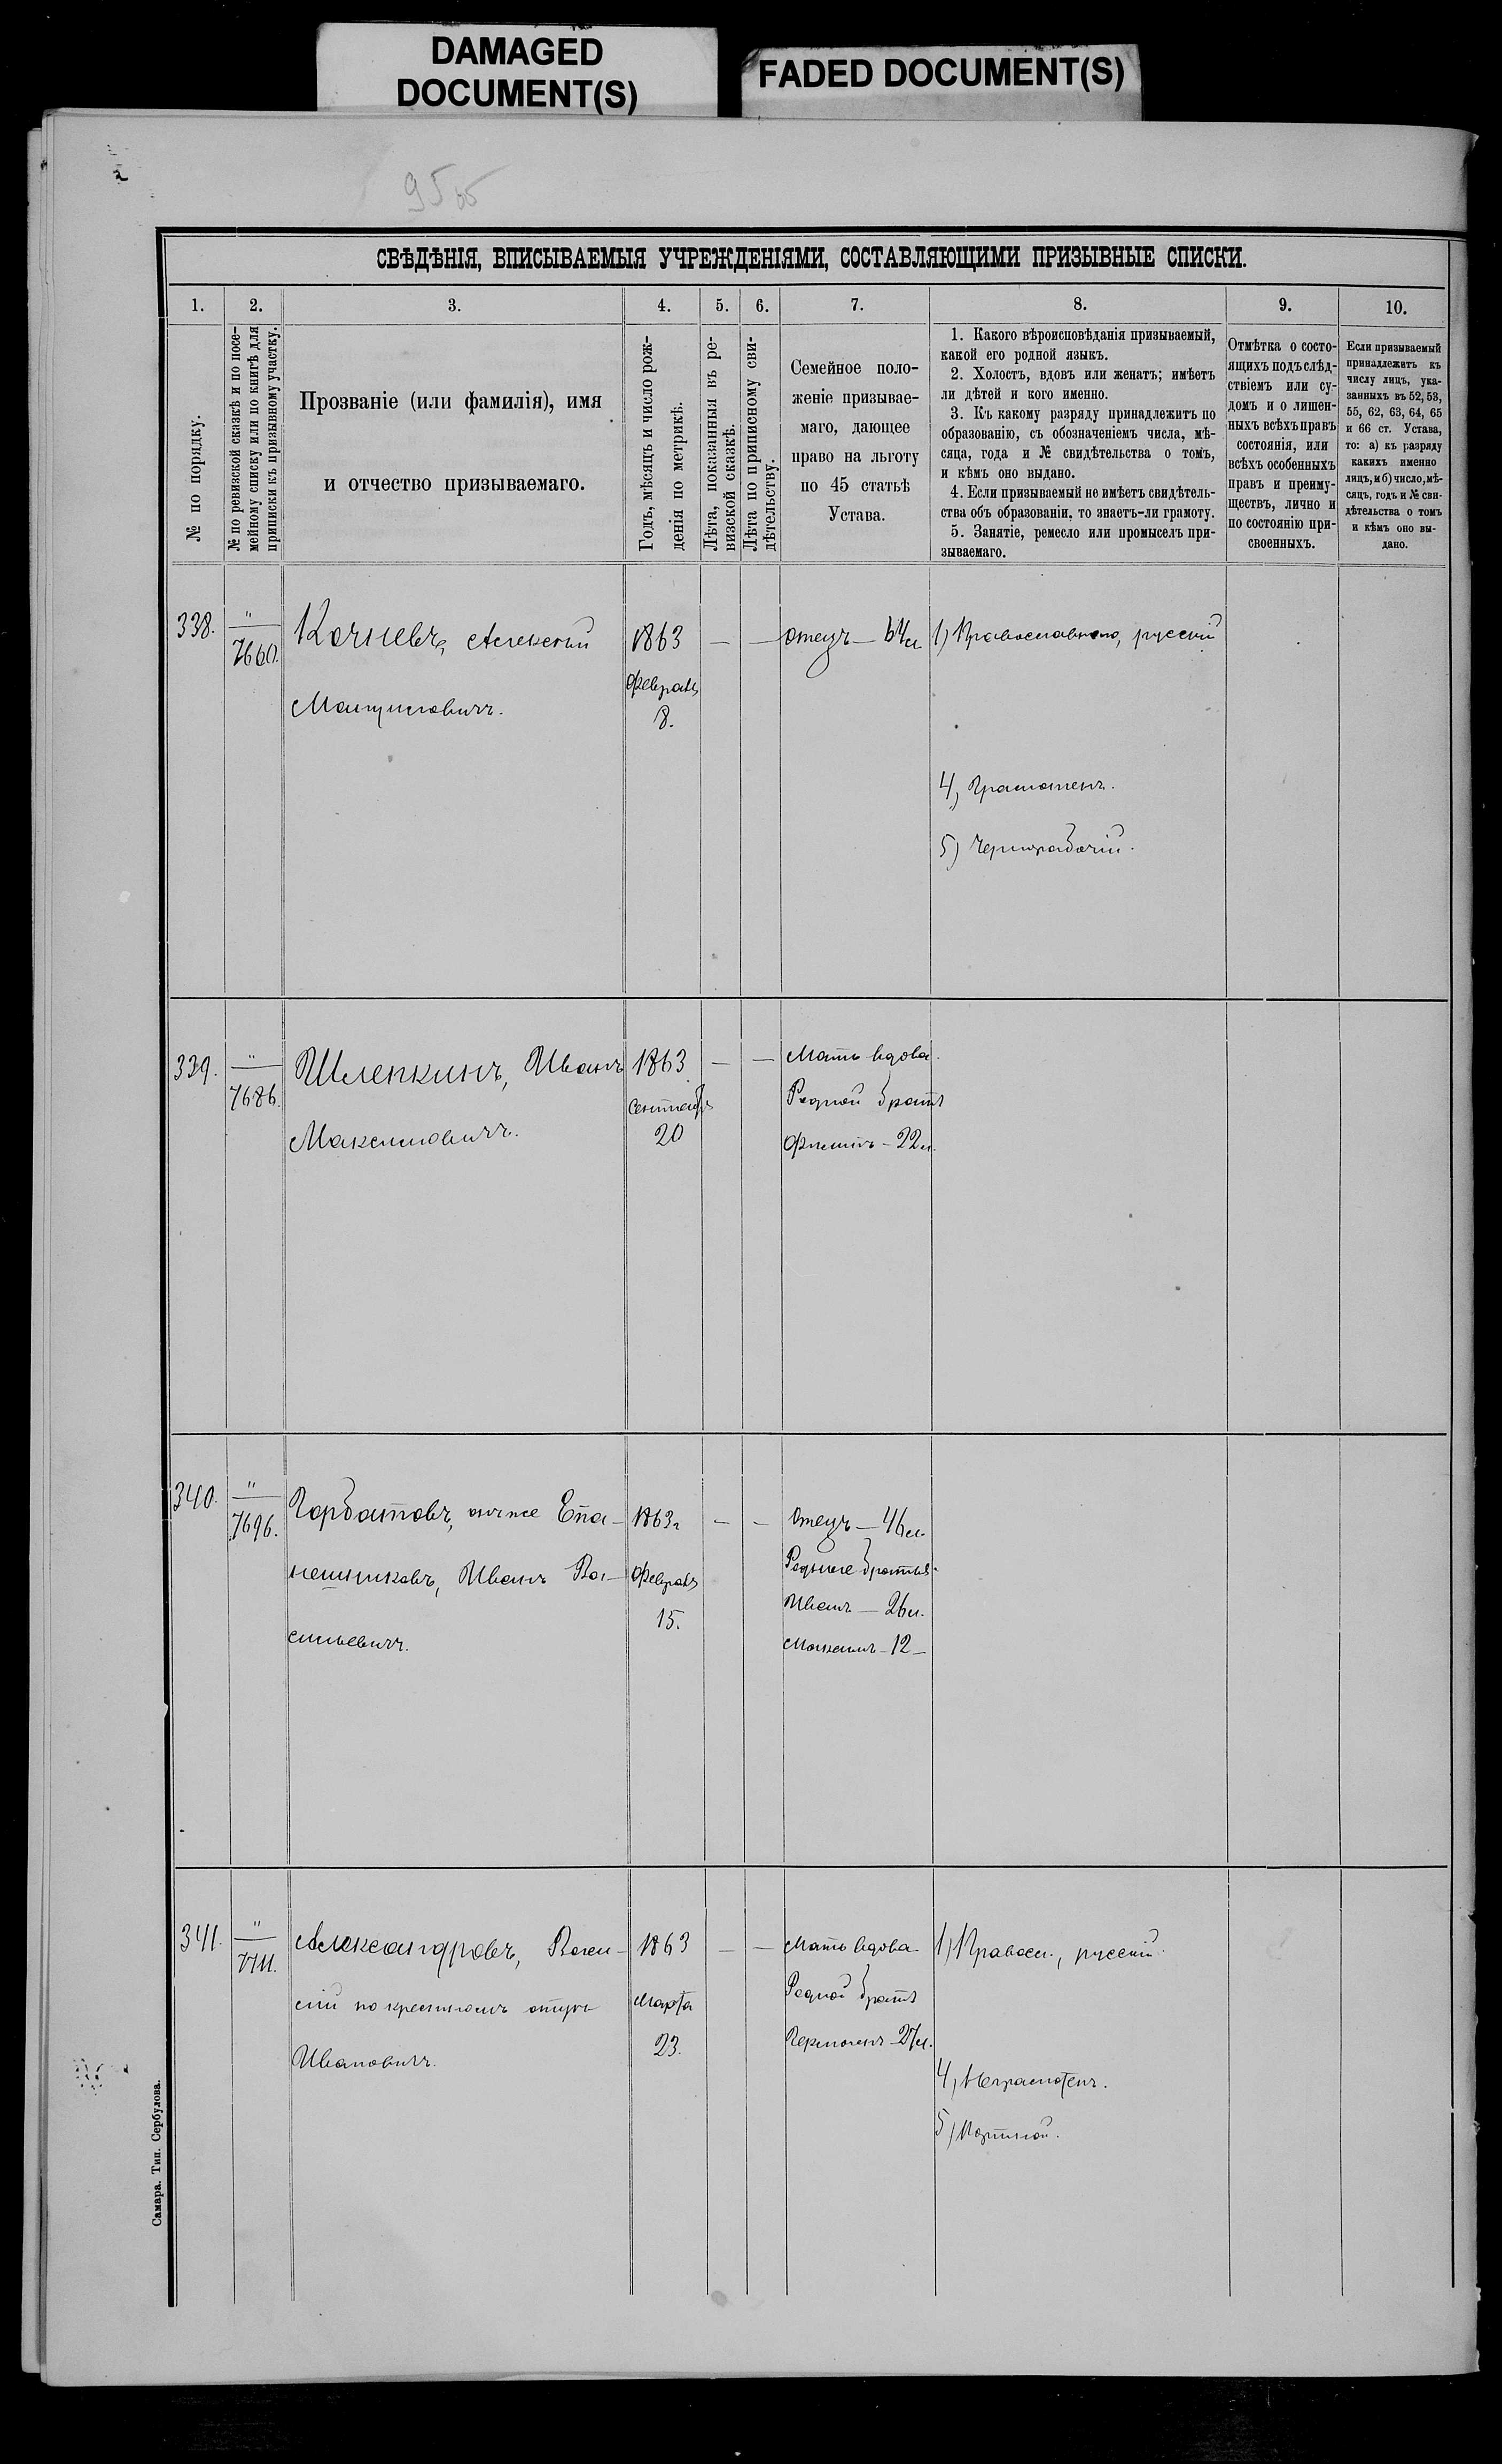 DAMAGED
DOCUMENT(S)
FADED DOCUMENT(S)
СВѢДѢНІЯ, ВПИСЫВАЕМЫЯ УЧРЕЖДЕНІЯМИ, СОСТАВЛЯЮЩИМИ ПРИЗЫВНЫЕ СПИСКИ.
1.
2.
3.
4.
5.
6.
7.
8.
9.
10.
№ по порядку.
№ по ревизской сказкѣ и по посе-
мейному списку или по книгѣ для
приписки къ призывному участку.
Прозваніе (или фамилія), имя
и отчество призываемаго.
Годъ, мѣсяцъ и число рож-
денія по метрикѣ.
Лѣта, показанныя въ ре-
визской сказкѣ.
Лѣта по приписному сви-
дѣтельству.
Семейное поло-
женіе призывае-
маго, дающее
право на льготу
по 45 статьѣ
Устава.
1. Какого вѣроисповѣданія призываемый,
какой его родной языкъ.
2. Холостъ, вдовъ или женатъ; имѣетъ
ли дѣтей и кого именно.
3. Къ какому разряду принадлежитъ по
образованію, съ обозначеніемъ числа, мѣ-
сяца, года и № свидѣтельства о томъ,
и кѣмъ оно выдано.
4. Если призываемый не имѣетъ свидѣтель-
ства объ образованіи, то знаетъ-ли грамоту.
5. Занятіе, ремесло или промыселъ при-
зываемаго.
Отмѣтка о состо-
ящихъ подъ слѣд-
ствіемъ или су-
домъ и о лишен-
ныхъ всѣхъ правъ
состоянія, или
всѣхъ особенныхъ
правъ и преиму-
ществъ, лично и
по состоянію при-
своенныхъ.
Если призываемый
принадлежитъ къ
числу лицъ, ука-
занныхъ въ 52, 53,
55, 62, 63, 64, 65
и 66 ст. Устава,
то: а) къ разряду
какихъ именно
лицъ, и б) число, мѣ-
сяцъ, годъ и № сви-
дѣтельства о томъ
и кѣмъ оно вы-
дано.
338.
"
7660.
Кочневъ, Алексѣй
1863
— —
отецъ — 64 л.
1) Православнаго, русскій
Февраля
8.
4) Грамотенъ.
5) Чернорабочій.
339.
"
7686.
Шлепкинъ, Иванъ
Максимовичъ.
1863
Сентября
20
— —
Мать вдова.
Родной братъ
22 л.
340.
"
7696.
Горбатовъ, онъ же Епа-
нешниковъ, Иванъ Ва-
сильевичъ.
1863 г
Февраля
15.
— —
Отецъ — 46 л.
Родные братья:
Иванъ — 26 л.
Максимъ — 12 —
341.
"
7711.
Александровъ, Васи-
лій по крестному отцу
Ивановичъ.
1863
Марта
23.
— —
Мать вдова.
Родной братъ
Гермогенъ — 27 л.
1) Правосл., русскій.
4) Неграмотенъ.
5) Портной.
Самара. Тип. Сербулова.